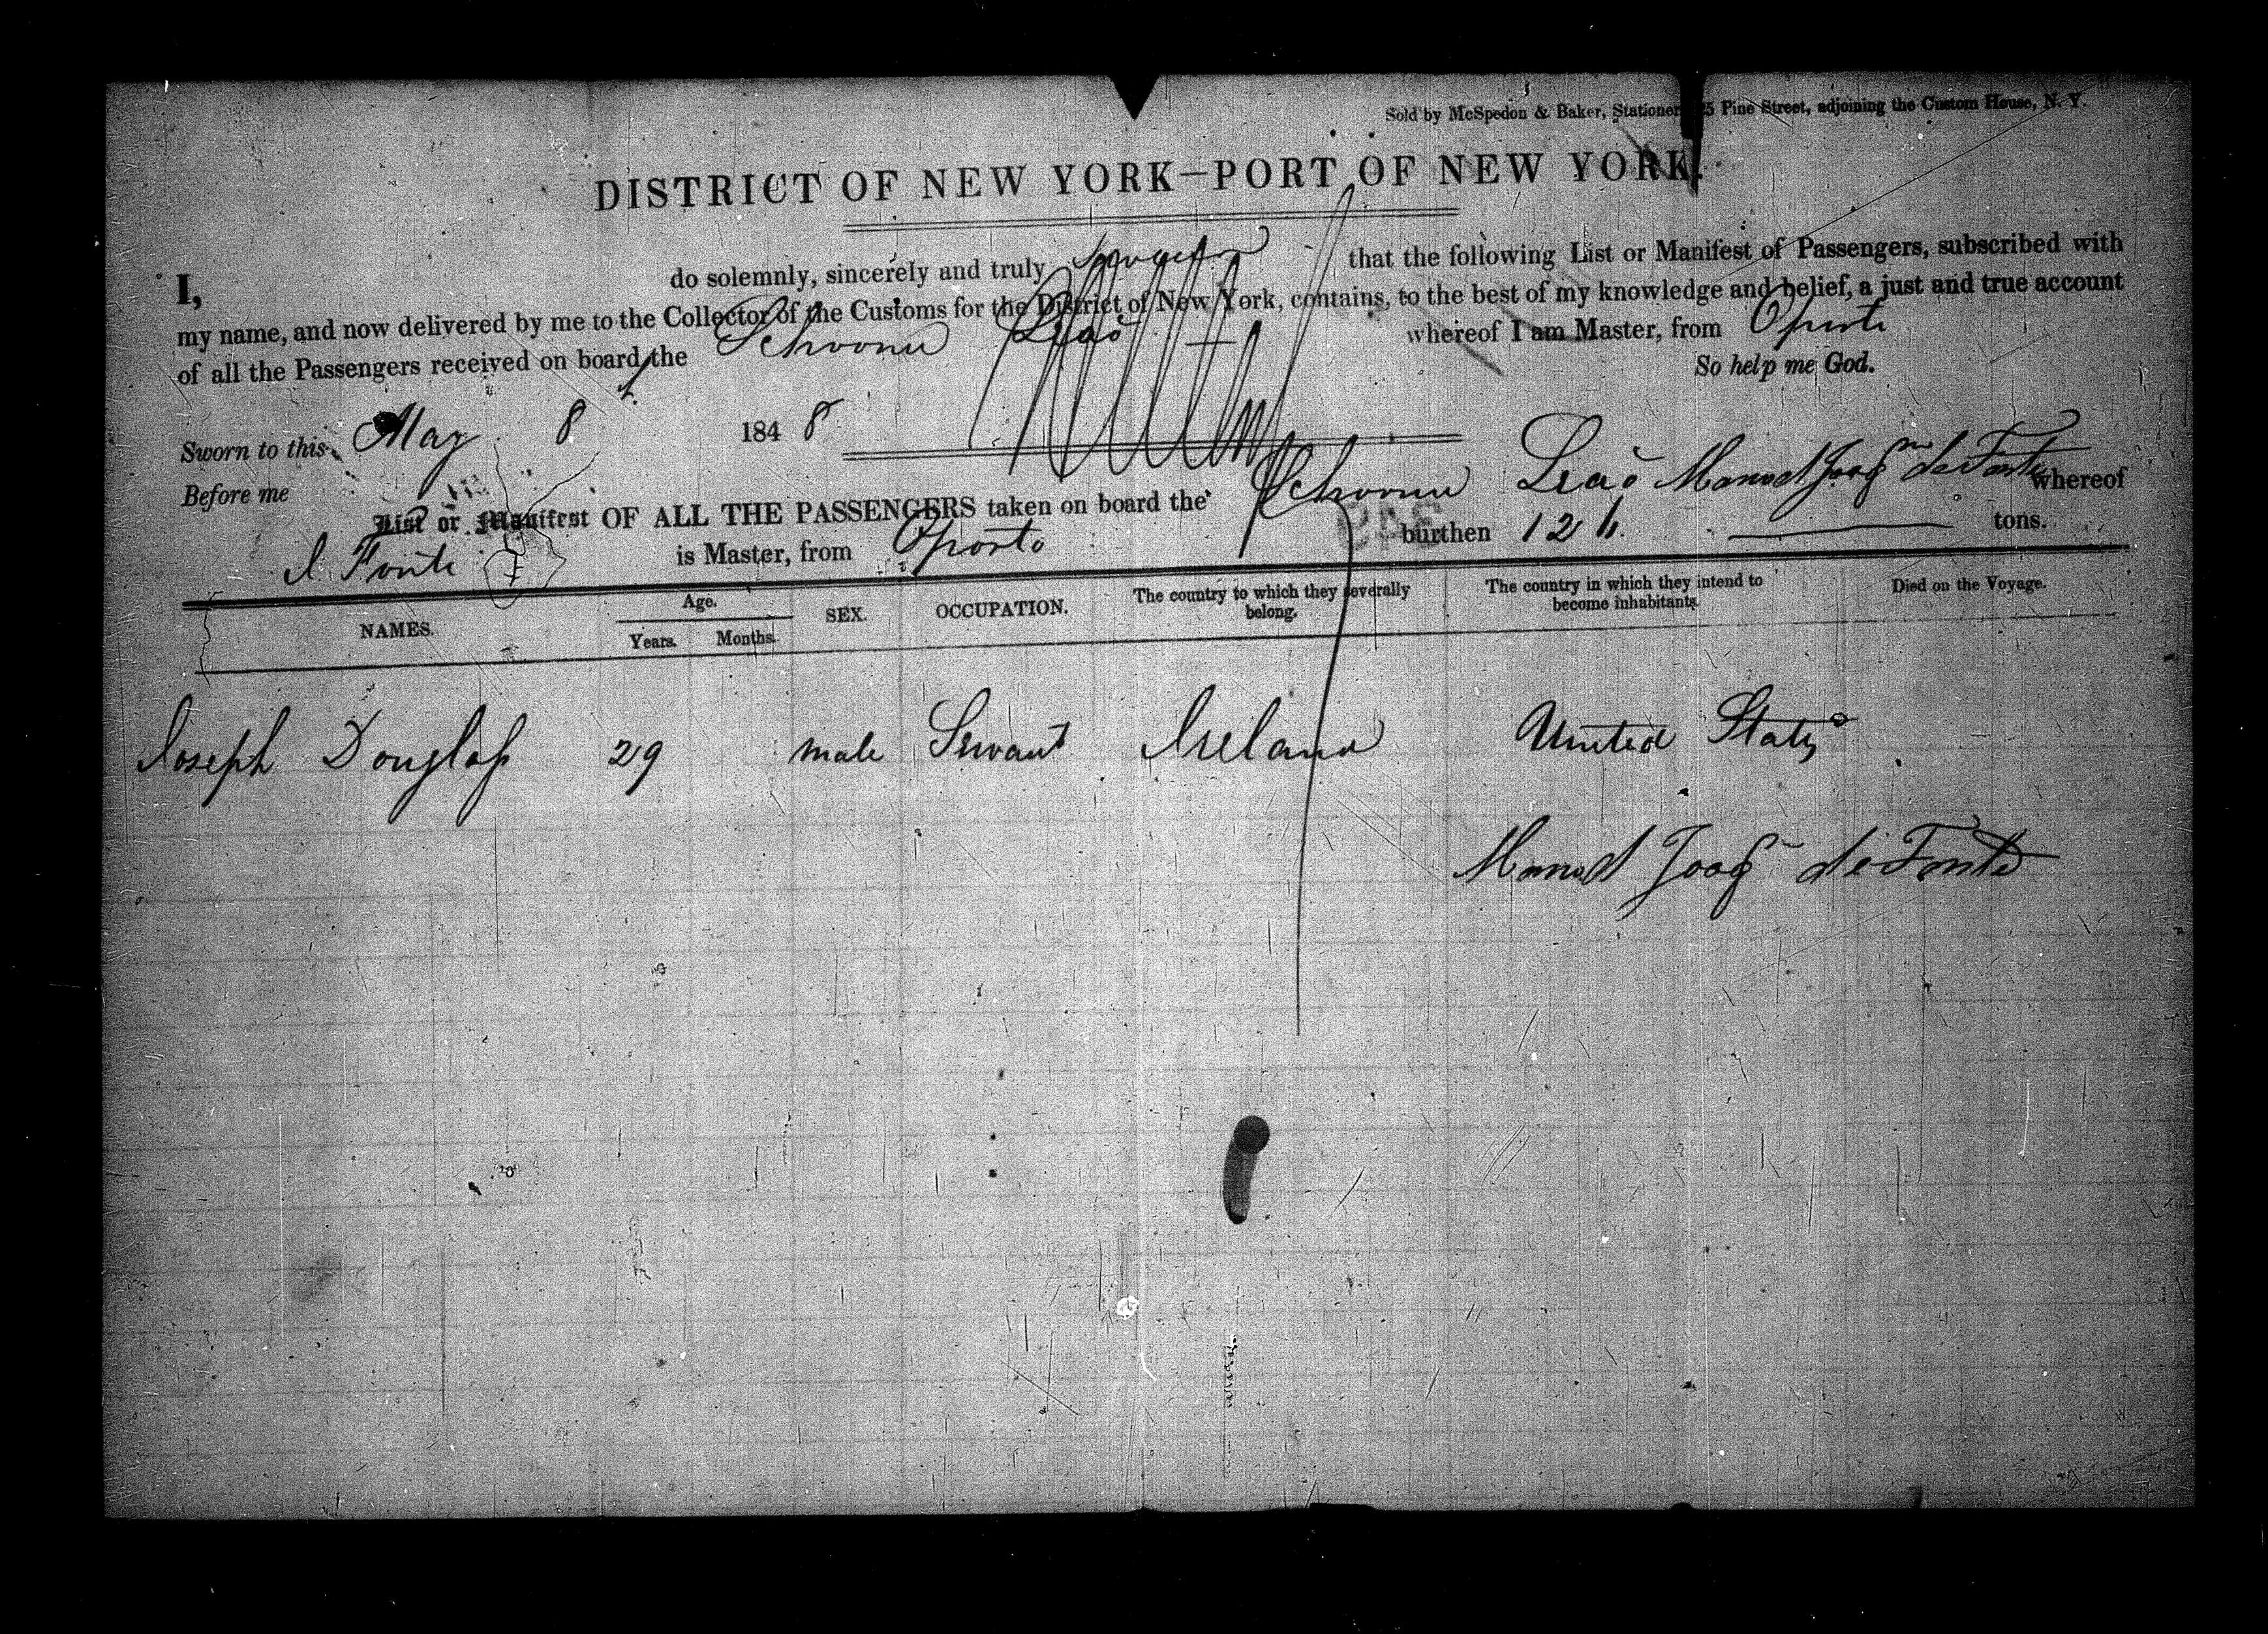 Sold by McSpedon & Baker, Stationers, 25 Pine Street, adjoining the Custom House, N. Y.
DISTRICT OF NEW YORK—PORT OF NEW YORK.
I, do solemnly, sincerely and truly that the following List or Manifest of Passengers, subscribed with
my name, and now delivered by me to the Collector of the Customs for the District of New York, contains, to the best of my knowledge and belief, a just and true account
of all the Passengers received on board the Schooner Leaõ whereof I am Master, from Oporto
So help me God.
Sworn to this May 8 1848
Before me
List or Manifest OF ALL THE PASSENGERS taken on board the Schooner Leaõ Manoel Joaq.m de Fonte whereof
is Master, from Oporto burthen tons.
NAMES. Age. Years. Months. SEX. OCCUPATION. The country to which they severally belong. The country in which they intend to become inhabitants. Died on the Voyage.
Joseph Douglass 29 male Servant Ireland United States
Manoel Joaq de Fonte